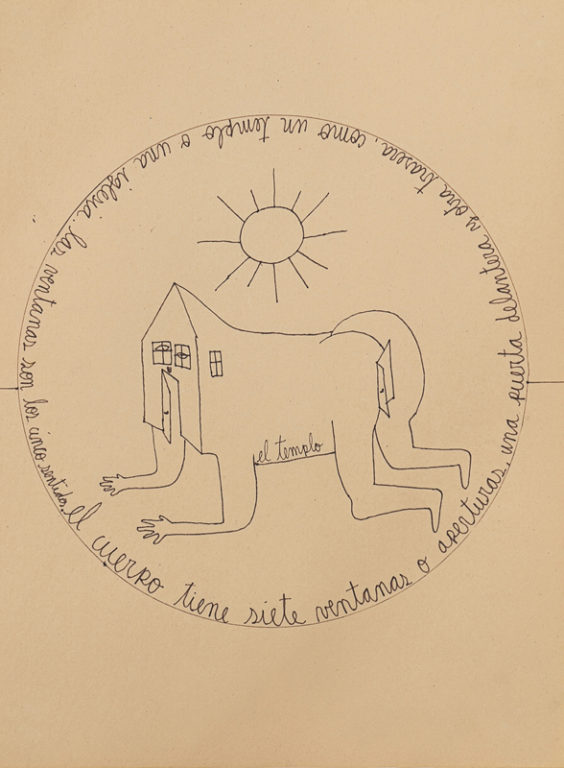 El cuerpo tiene siete ventanas o aperturas, una puerta delantera y otra trasera, como un templo o una iglesia. Las ventanas son los cinco sentidos.
el templo